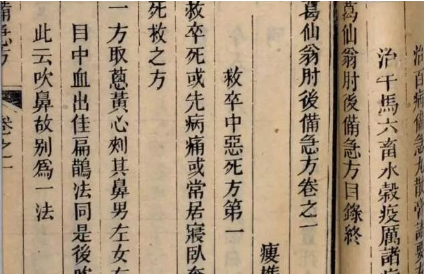 治百病備急丸散常諸要方
治牛馬六畜水穀疫厲諸病
葛仙翁肘後備急方目錄終
葛仙翁肘後備急方卷之一
救卒中惡死方第一
救卒死或先病痛或常居寢臥奄
死救之方
一方取葱黃心刺其鼻男左女右
目中血出佳扁鵲法同是後
此云吹鼻故別爲一法
備急方
卷之一